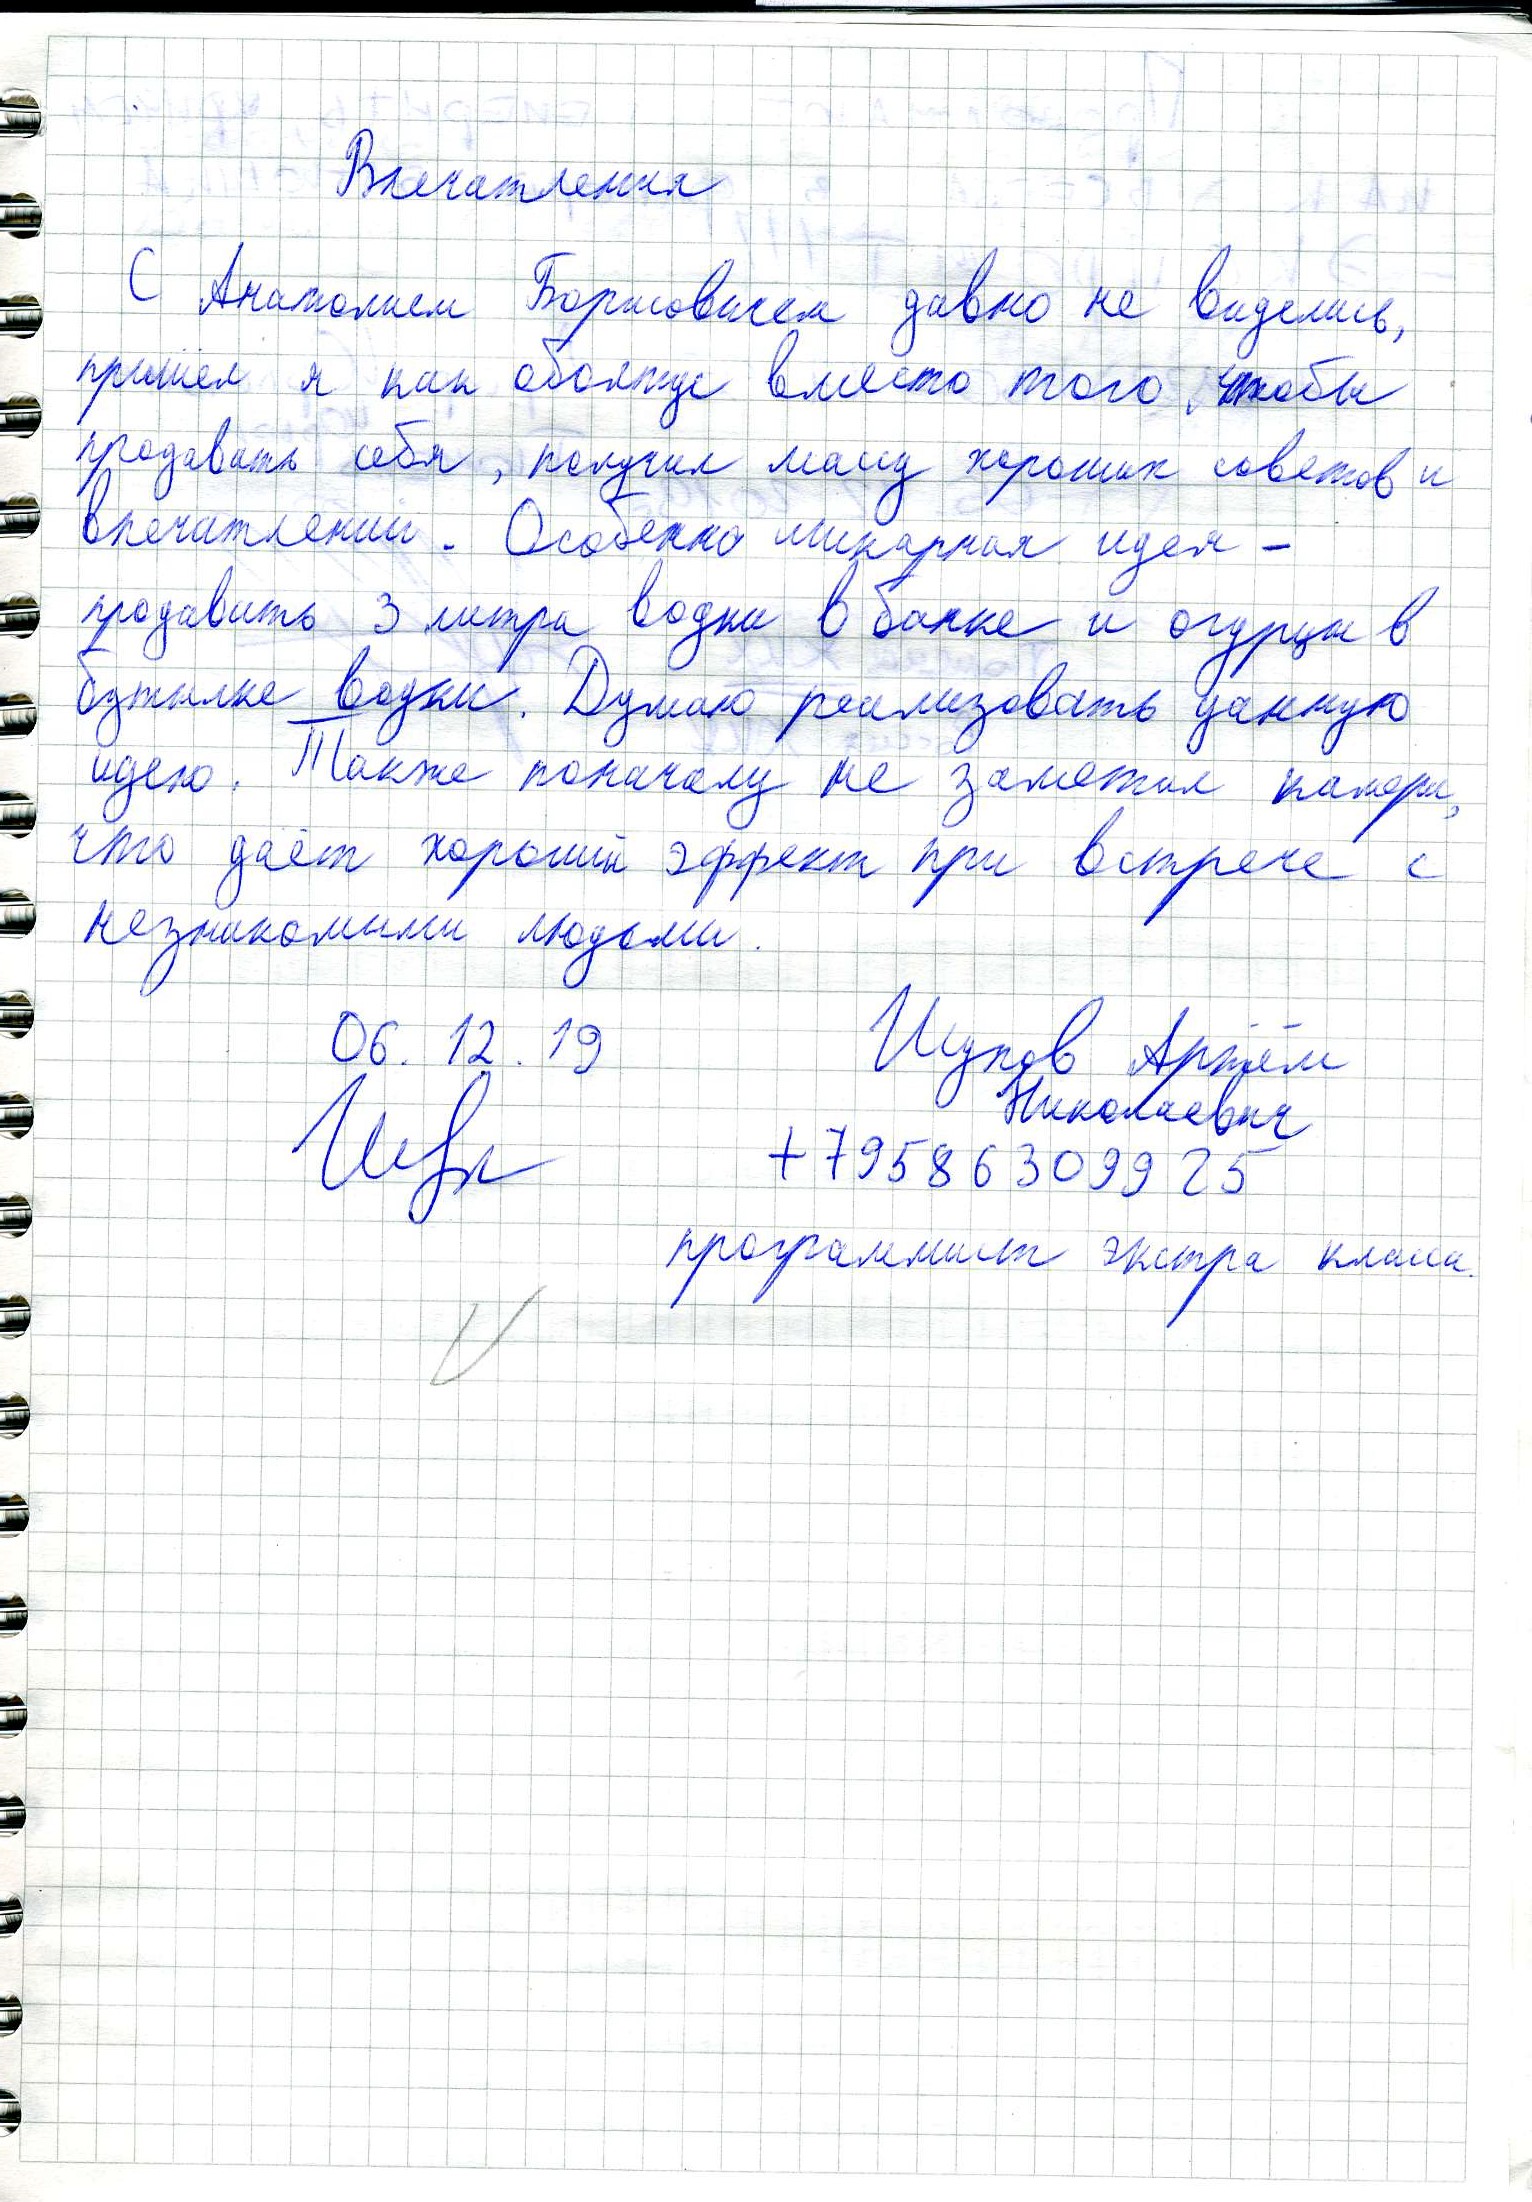 Впечатления
С Анатолием Борисовичем давно не виделись,
пришёл я как оболтус вместо того, чтобы
продавать себя, получил массу хороших советов и
впечатлений. Особенно шикарная идея -
продавить 3 литра водки в банке и огурцы в
бутылке водки. Думаю реализовать данную
идею. Также поначалу не заметил камеры,
что даёт хороший эффект при встрече с
незнакомыми людьми.
06.12.19 Щупов Артём
Николаевич
+79586309925
программист экстра класса.